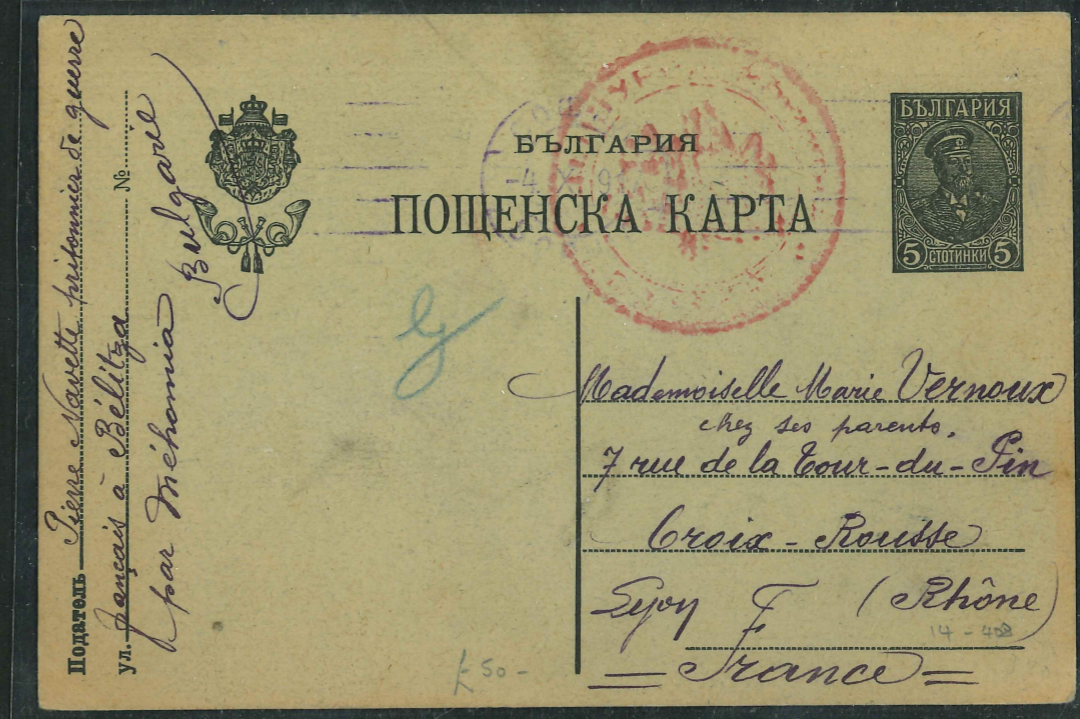 БЪЛГАРИЯ
ПОЩЕНСКА КАРТА
БЪЛГАРИЯ
5 СТОТИНКИ 5
-4. X
Податель Pierre Navette prisonnier de guerre
ул. français à Bélitza №
par Méhomia
Bulgarie
Mademoiselle Marie Vernoux
chez ses parents.
7 rue de la Tour-du-Pin
Croix-Rousse
Lyon (Rhône)
14-408
= France =
£50-